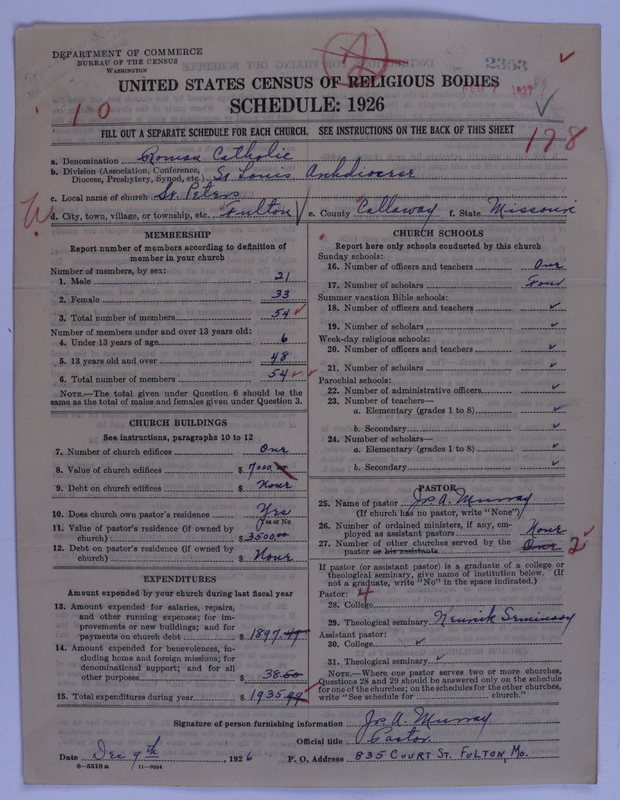 DEPARTMENT OF COMMERCE
BUREAU OF THE CENSUS
WASHINGTON
2353
UNITED STATES CENSUS OF RELIGIOUS BODIES
1927
SCHEDULE: 1926
1 0
FILL OUT A SEPARATE SCHEDULE FOR EACH CHURCH. SEE INSTRUCTIONS ON THE BACK OF THIS SHEET
178
a. Denomination Roman Catholic
b. Division (Association, Conference,
Diocese, Presbytery, Synod, etc.) St Louis Archdiocese
c. Local name of church St. Peters
d. City, town, village, or township, etc. Fulton e. County Callaway f. State Missouri
MEMBERSHIP
Report number of members according to definition of
member in your church
Number of members, by sex:
1. Male 21
2. Female 33
3. Total number of members 54
Number of members under and over 13 years old:
4. Under 13 years of age 6
5. 13 years old and over 48
6. Total number of members 54
NOTE.—The total given under Question 6 should be
same as the total of males and females given under Question 3.
CHURCH BUILDINGS
See instructions, paragraphs 10 to 12
7. Number of church edifices One
8. Value of church edifices $ 7000.00
9. Debt on church edifices $ None
10. Does church own pastor's residence Yes
Yes or No
11. Value of pastor's residence (if owned by
church) $ 3500.00
12. Debt on pastor's residence (if owned by
church) $ None
EXPENDITURES
Amount expended by your church during last fiscal year
13. Amount expended for salaries, repairs,
and other running expenses; for im-
provements or new buildings; and for
payments on church debt $ 1897.49
14. Amount expended for benevolences, in-
cluding home and foreign missions; for
denominational support; and for all
other purposes $ 38.50
15. Total expenditures during year $ 1935.99
CHURCH SCHOOLS
Report here only schools conducted by this church
Sunday schools:
16. Number of officers and teachers One
17. Number of scholars Four
Summer vacation Bible schools:
18. Number of officers and teachers ✓
19. Number of scholars ✓
Week-day religious schools:
20. Number of officers and teachers ✓
21. Number of scholars ✓
Parochial schools:
22. Number of administrative officers ✓
23. Number of teachers—
a. Elementary (grades 1 to 8) ✓
b. Secondary ✓
24. Number of scholars—
a. Elementary (grades 1 to 8) ✓
b. Secondary ✓
PASTOR
25. Name of pastor Jos A. Murray
(If church has no pastor, write "None")
26. Number of ordained ministers, if any, em-
ployed as assistant pastors None
27. Number of other churches served by the
pastor or his assistants One 2
If pastor (or assistant pastor) is a graduate of a college or
theological seminary, give name of institution below. (If
not a graduate, write "No" in the space indicated.)
Pastor: 4
28. College
29. Theological seminary Kenrik Seminary
Assistant pastor:
30. College ✓
31. Theological seminary ✓
NOTE.—Where one pastor serves two or more churches,
Questions 28 and 29 should be answered only on the schedule
for one of the churches; on the schedules for the other churches,
write "See schedule for church."
Signature of person furnishing information Jos A. Murray
Official title Pastor
Date Dec 9th, 1926 P. O. Address 835 COURT ST. FULTON, MO.
8—5518a 11—9054